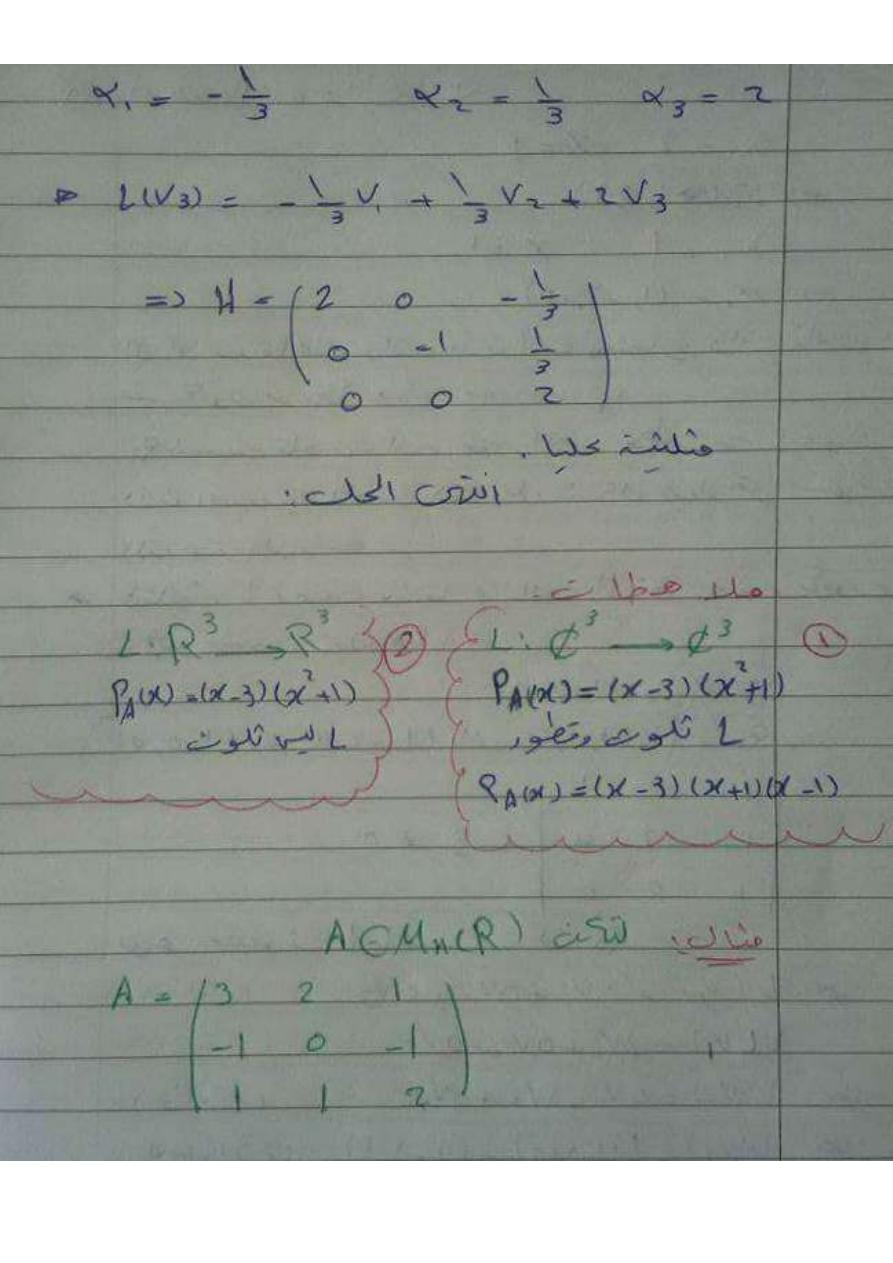 α₁ = - 1/3 α₂ = 1/3 α₃ = 2
L(V₃) = - 1/3 V₁ + 1/3 V₂ + 2V₃
=> H = ( 2 0 - 1/3
0 -1 1/3
0 0 2 )
مثلثية عليا.
انتهى الحل:
ملاحظات:
① L: ₵³ → ₵³
P_A(x) = (x-3)(x²+1)
L ثلوث وتطور
P_A(x) = (x-3)(x+1)(x-1)
② L: R³ → R³
P_A(x) = (x-3)(x²+1)
L ليس ثلوث
مثال: لتكن A ∈ Mₙ(R)
A = ( 3 2 1
-1 0 -1
1 1 2 )